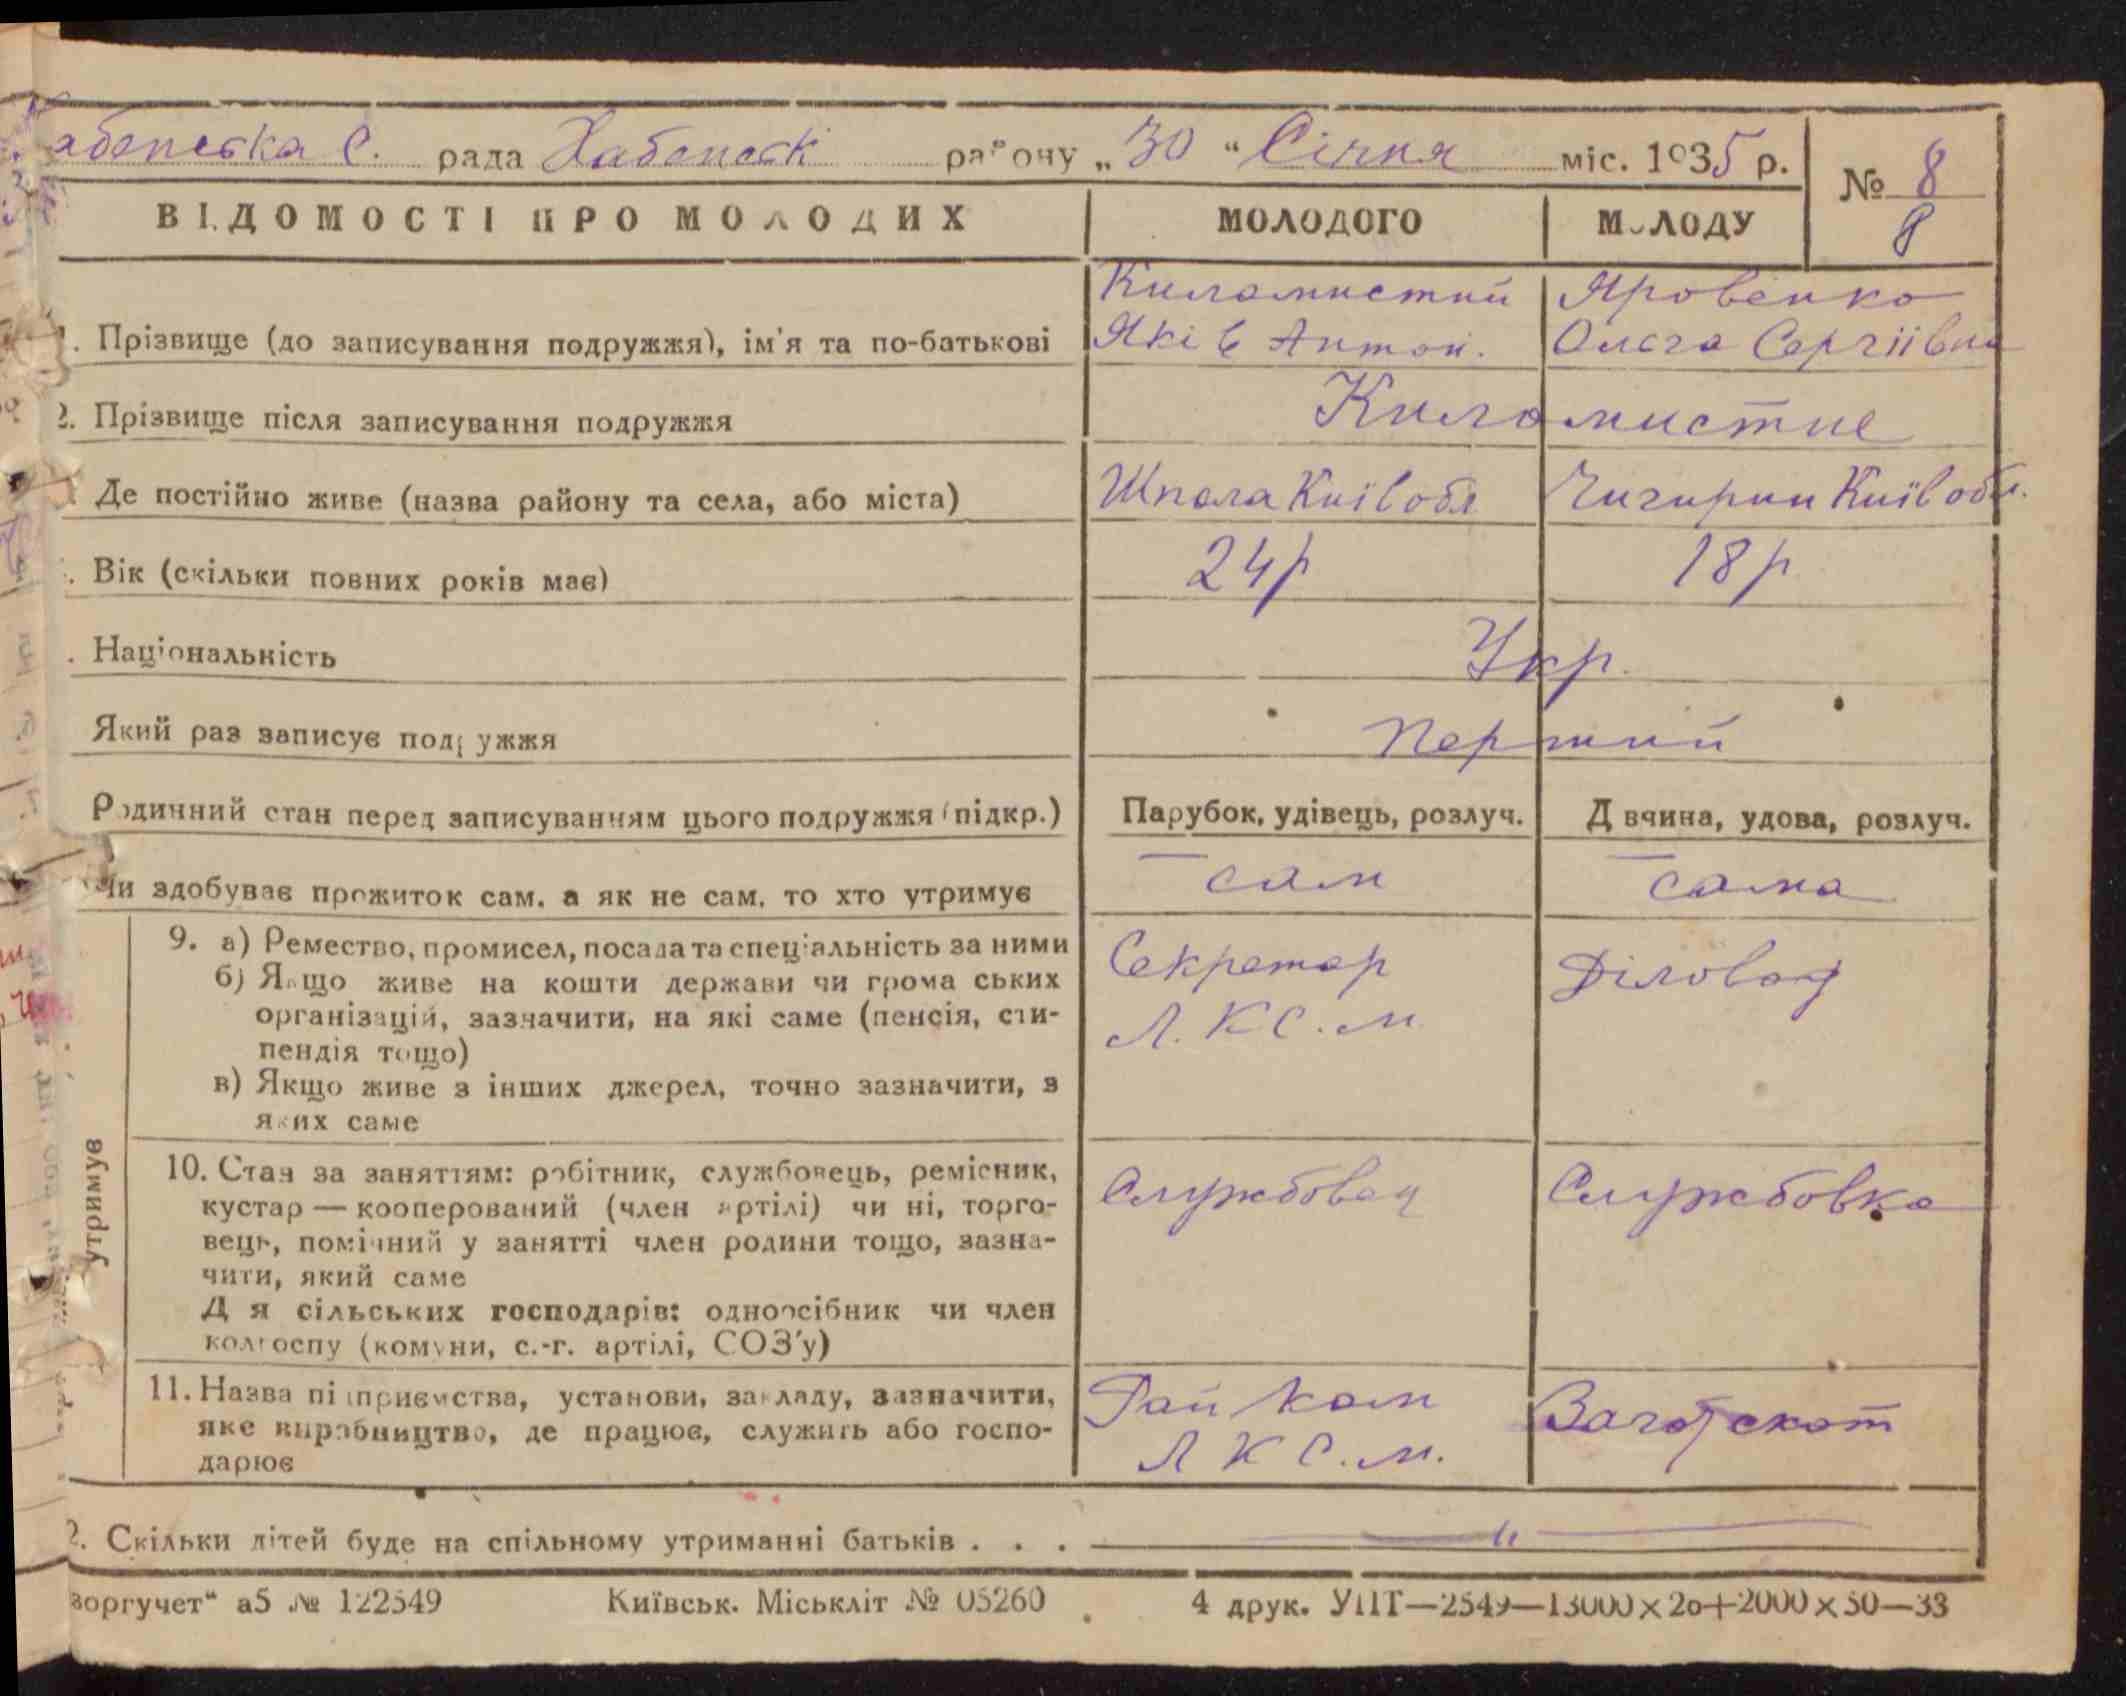 абенська С. рада Хабенськ району „30" Січня міс. 1935 р. № 8
8
ВІДОМОСТІ ПРО МОЛОДИХ МОЛОДОГО МОЛОДУ
1. Прізвище (до записування подружжя), ім'я та по-батькові
Киломистий
Яків Антон.
Яровенко
Ольга Сергіївна
2. Прізвище після записування подружжя Киломистие
Де постійно живе (назва району та села, або міста) Шпола Київ обл Чигирин Київ обл.
. Вік (скільки повних років має) 24 р 18 р
. Національність Укр.
Який раз записує подружжя Перший
Родинний стан перед записуванням цього подружжя (підкр.) Парубок, удівець, розлуч. Дівчина, удова, розлуч.
Чи здобуває прожиток сам, а як не сам, то хто утримує сам сама
утримує
9. а) Ремество, промисел, посада та спеціальність за ними
б) Якщо живе на кошти держави чи громадських
організацій, зазначити, на які саме (пенсія, сти-
пендія тощо)
в) Якщо живе з інших джерел, точно зазначити, з
яких саме
Секретар
Л.КС.м
Діловод
10. Стан за заняттям: робітник, службовець, ремісник,
кустар — кооперований (член артілі) чи ні, торго-
вець, помічний у занятті член родини тощо, зазна-
чити, який саме
Для сільських господарів: одноосібник чи член
колгоспу (комуни, с.-г. артілі, СОЗ'у)
Службовец
Службовка
11. Назва підприємства, установи, закладу, зазначити,
яке виробництво, де працює, служить або госпо-
дарює
Рай Ком
Л К С.м.
Заготскот
2. Скільки дітей буде на спільному утриманні батьків . . . — " —
воргучет" а5 № 122549 Київськ. Міськліт № 05260 4 друк. УПТ—2549—13000×20+2000×50—33